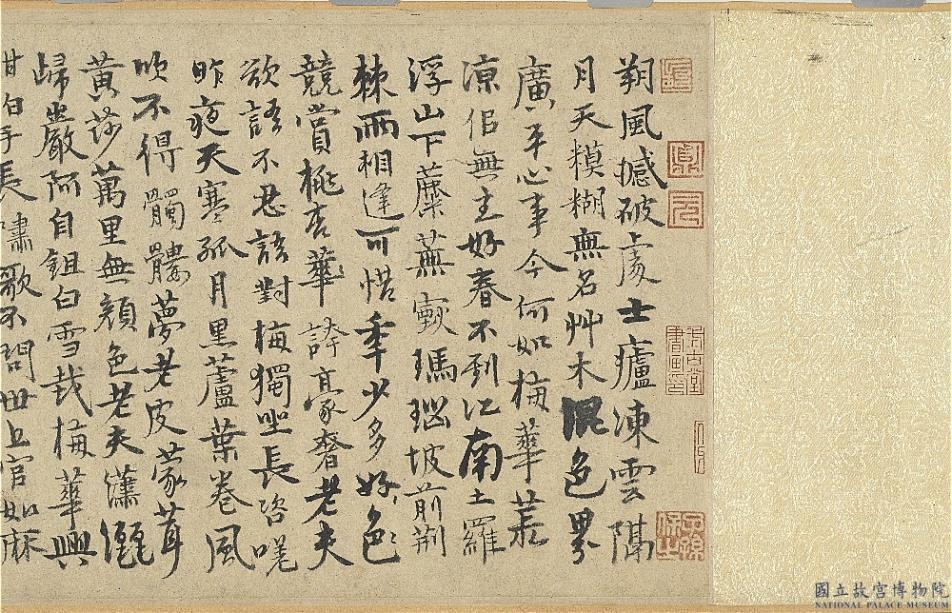 朔風撼破處士廬凍雲隔
月天糢糊無名艸木混色界
廣平心事今何如梅華荒
涼似無主好春不到江南土羅
浮山下蘼蕪瑪瑙坡前荊
棘雨相逢可惜年少多好色
競賞桃杏華誇豪奢老夫
欲語不忍語對梅獨坐長咨嗟
昨夜天寒孤月黑蘆葉卷風
吹不得髑髏夢老皮蒙茸
黃莎萬里無顏色老夫瀟灑
歸巖阿自鉏白雪栽梅華興
手長嘯歌不問世上官如麻
國立故宮博物院
NATIONAL PALACE MUSEUM